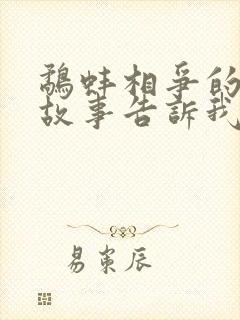 鷸蚌相爭的
故事告訴我
易寀辰